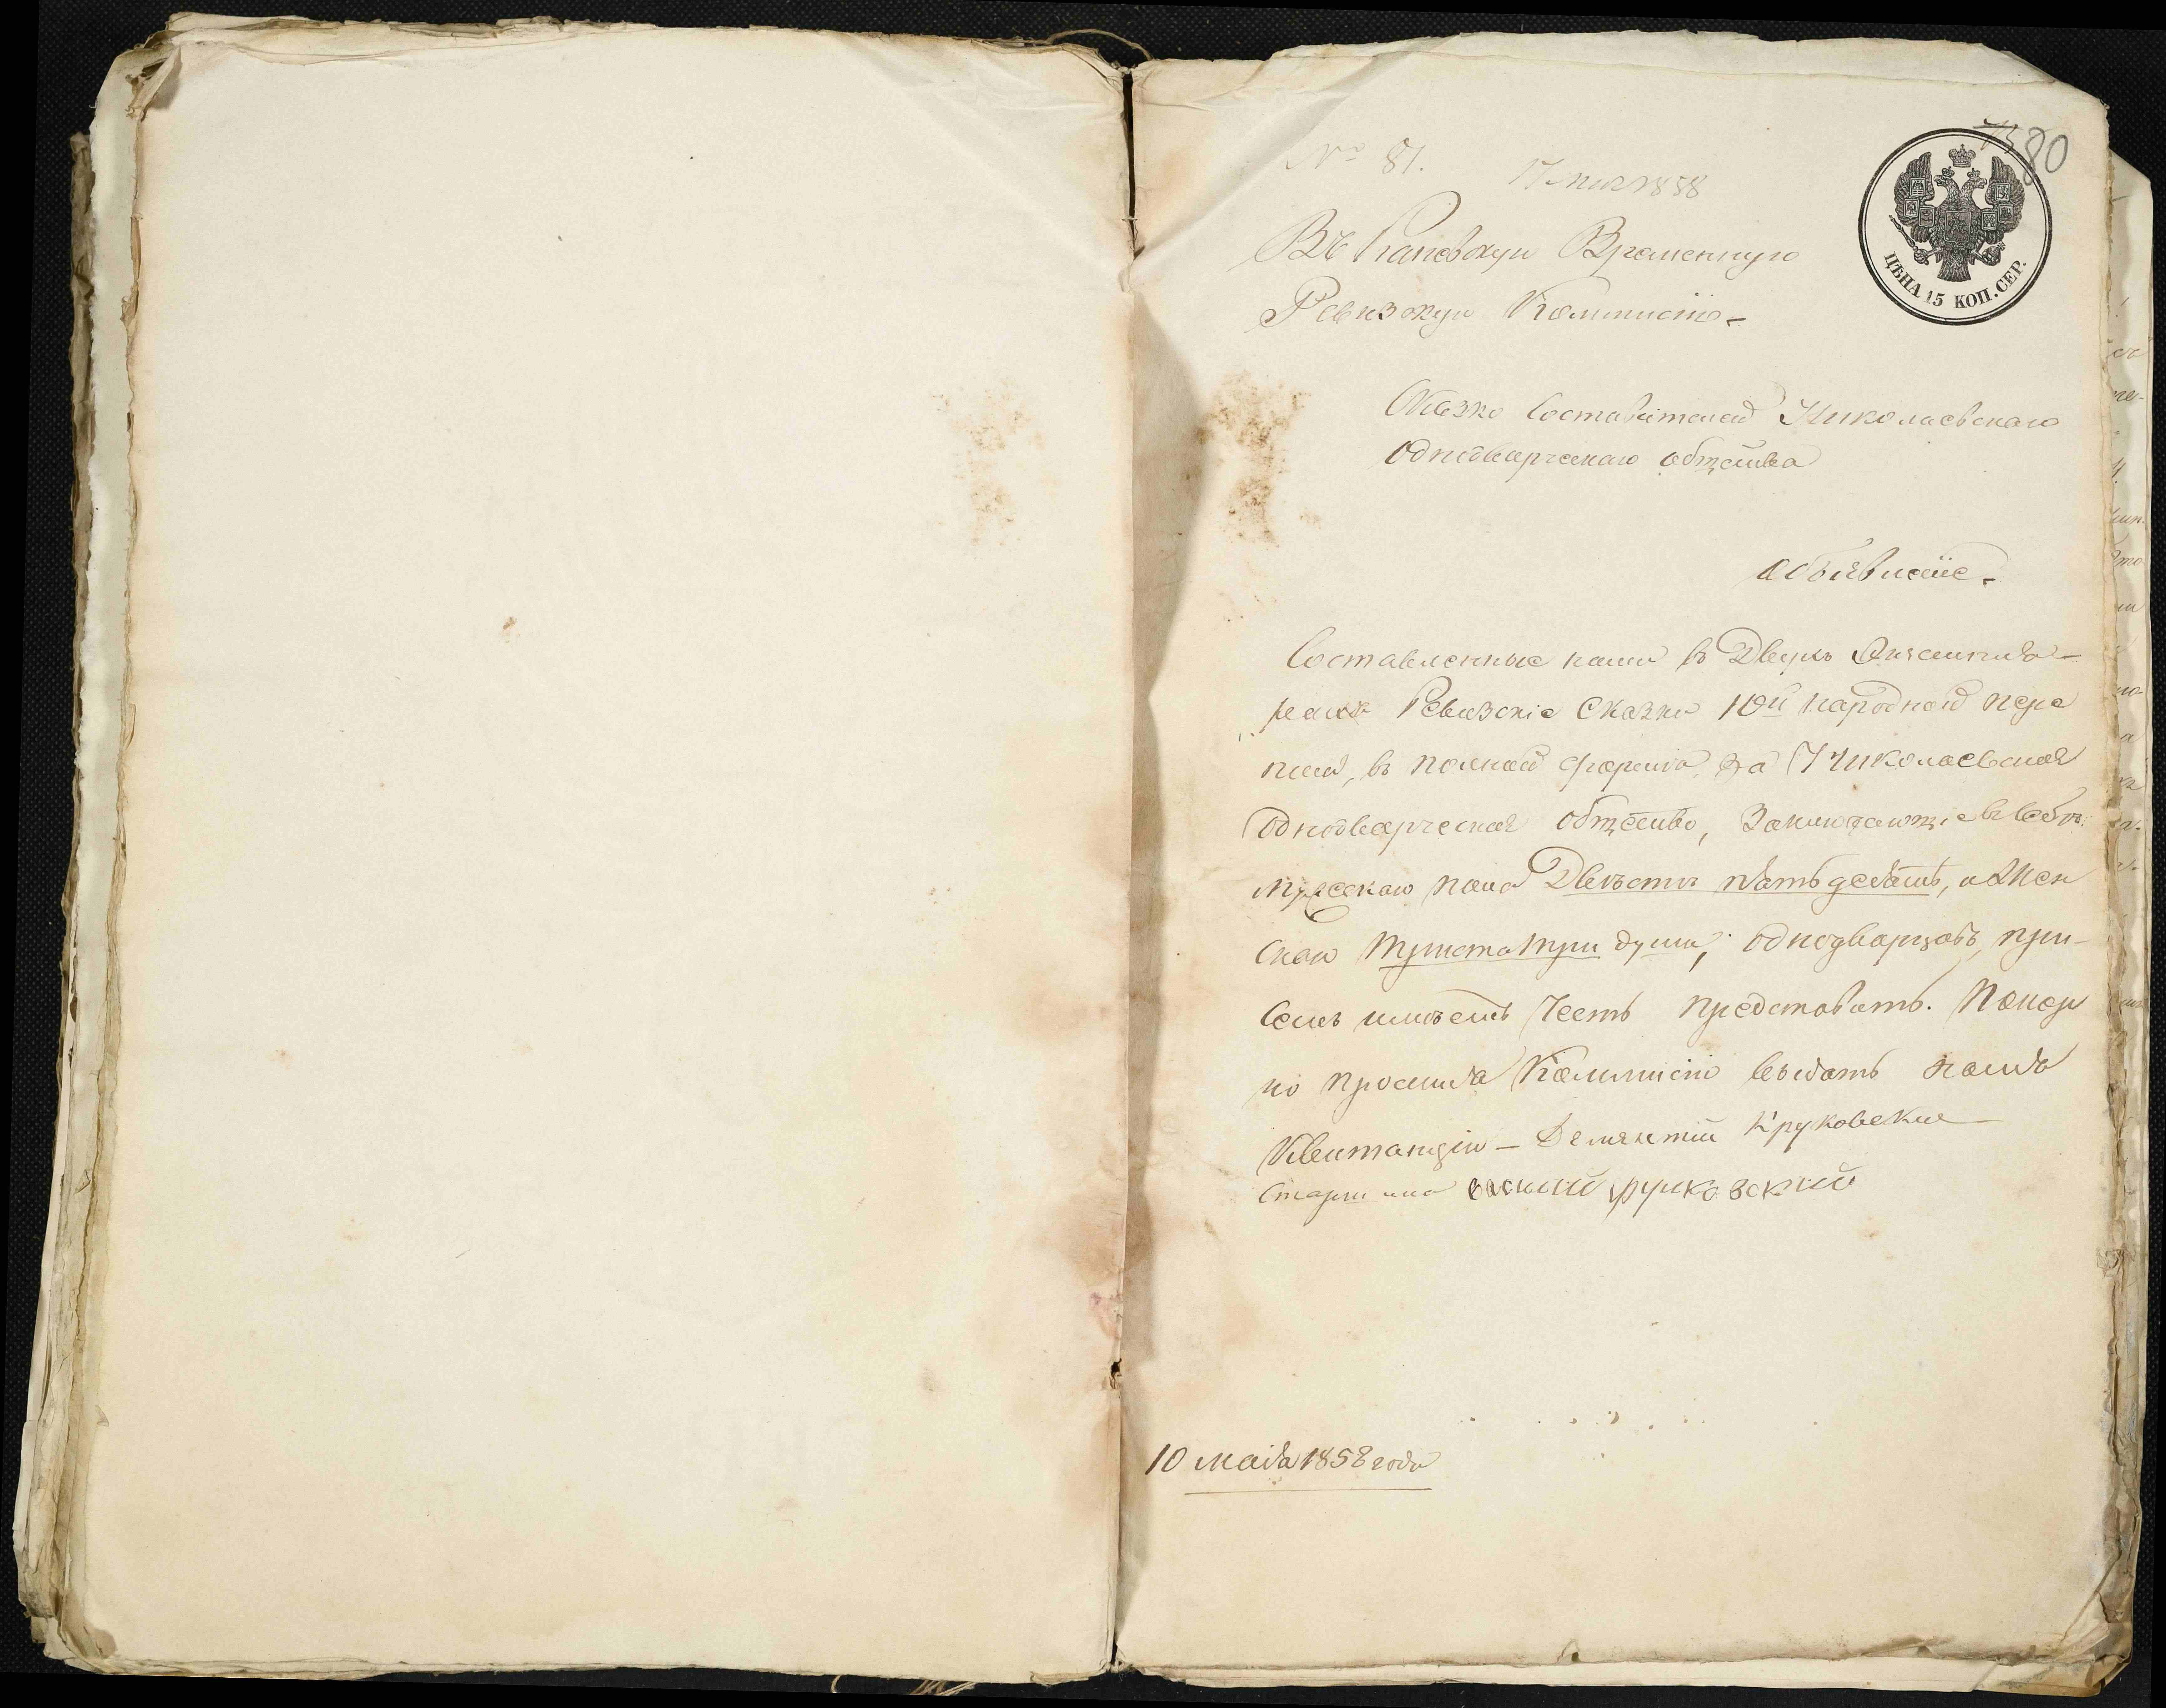 № 81.
17 мая 1858
80
ЦѢНА 15 КОП. СЕР.
Въ Каневскую Временную
Ревизскую Коммисію
Сказко Составителей Николаевскаго
Однодворческаго общества
объявленіе
Составленные нами въ Двухъ Экземпля-
рахъ Ревизскіе Сказки 10й народной пере
писи, въ полной формѣ, за Николаевское
Однодворческое общество, Заключающіе въ себѣ
мужескаго пола Двѣсти пятьдесятъ, и Жен
скаго триста три души, однодворцовъ, при
семъ имѣемъ Честь Представить. Покор
но просимъ Коммисію выдать намъ
Квитанцію – Дементій Круковскій
Старшина
10 мая 1858 года